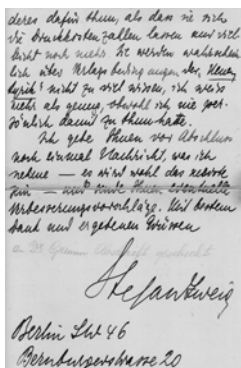 deres dafür thun, als dass sie sich
die Druckkosten zahlen lassen und viel-
leicht noch mehr. Sie werden wahrschein-
lich über Verlagsbedingungen der "Neuen
Lyrik" nicht zu viel wissen, ich weiss
mehr als genug, obwohl ich nie per-
sönlich damit zu thun hatte.
Ich gebe Ihnen vor Abschluss
noch einmal Nachricht, was ich
nehme — es wird wohl das
sein — und sende Ihnen eventuelle
Verbesserungsvorschläge. Mit bestem
Dank und ergebenen Grüssen
an Dr. Abschrift geschickt
Stefan Zweig
Berlin SW 46
Bernburgerstrasse 20